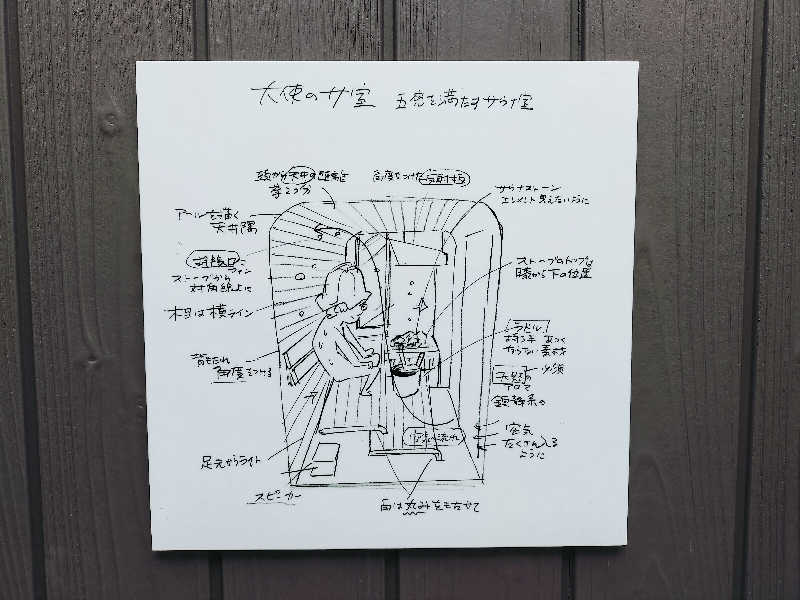 大使のサ室 五感を満たすサウナ室
頭から天井の距離を
角度をつけた反射板
サウナストーン
エレメント見えないように
アールを描く
天井隅
ストーブから
対角線上に
ストーブのトップは
膝から下の位置
木目は横ライン
ラドル
持つ手 あつく
ならない素材
背もたれ
角度をつける
必須
天然の
アロマ
鎮静系の
空気の流れ
空気
たくさん入る
ように
足元からライト
スピーカー
角は丸みをもたせて